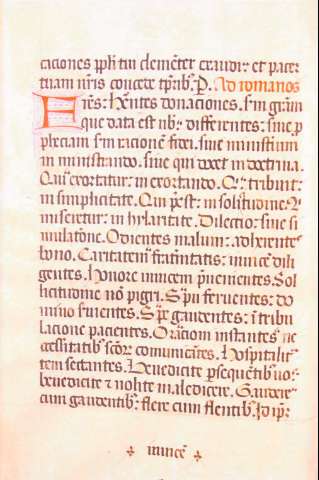 caciones pplī tui clementer exaudi: et pacem
tuam nr̄is concede tp̄ribꝰ. P. Ad romanos
Fr̄es: Habentes donaciones. Scd̄m grām
que data est nobꝰ: differentes: siue p̄
pheciam scd̄m racionē fidei. siue ministerium
in ministrando. siue qui docet in doctrina.
Qui exortatur: in exortando. Qui tribuit:
in simplicitate. Qui preest: in solicitudine. Qui
miseretur: in hylaritate. Dilectio: sine si
mulatōne. Odientes malum: adherentes
bono. Caritatem fraternitatis: inuicē dili
gentes. Honore inuicem preuenientes. Sol
licitudine nō pigri. Spū feruentes: do
mino seruientes. Spe gaudentes: in tribu
lacione pacientes. Oracioni instantes: ne
cessitatibꝰ scōrᷣ comunicātes. Hospitalita
tem sectantes. Benedicite persequētibꝰ uos:
benedicite et nolite maledicere. Gaudere
cum gaudentibꝰ: flere cum flentibꝰ. Idip̄m
inuicē